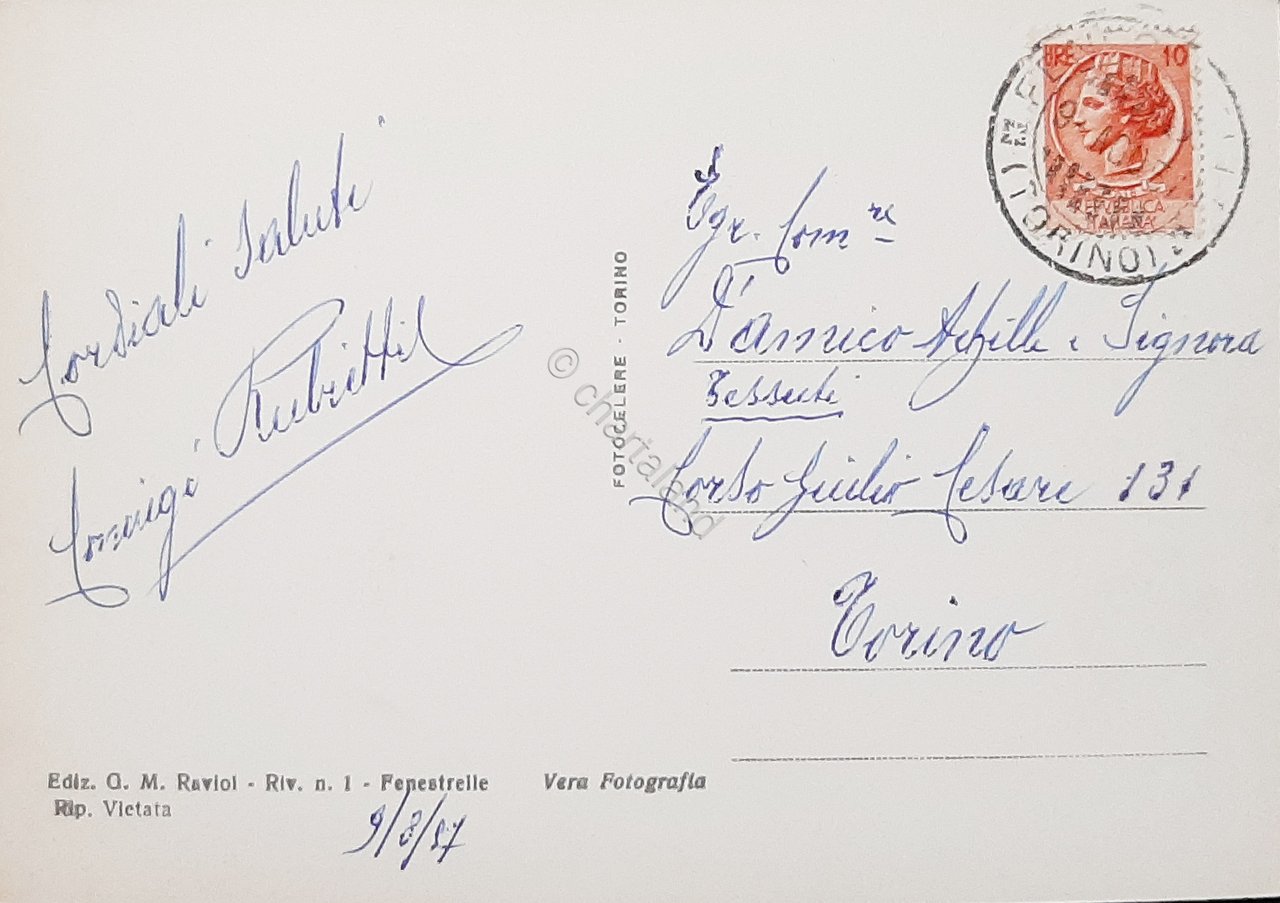 Cordiali Saluti
Coniugi Rubiettil
LIRE 10
REPUBBLICA
ITALIANA
(TORINO)
Egr. Com re
D'Amico Achille e Signora
Tessuti
Corso Giulio Cesare 131
Torino
FOTOCELERE - TORINO
© chartaland
Ediz. G. M. Raviol - Riv. n. 1 - Fenestrelle
Vera Fotografia
Rip. Vietata
9/8/57